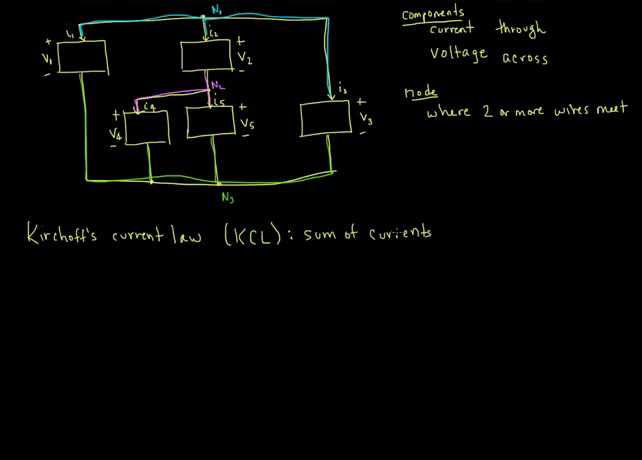 N₁
i₁
i₂
+
V₁
-
+
V₂
-
N₂
i₄
i₅
i₃
+
V₄
-
+
V₅
-
+
V₃
-
N₃
Components
current through
Voltage across
node
where 2 or more wires meet
Kirchoff's current law (KCL): sum of currents